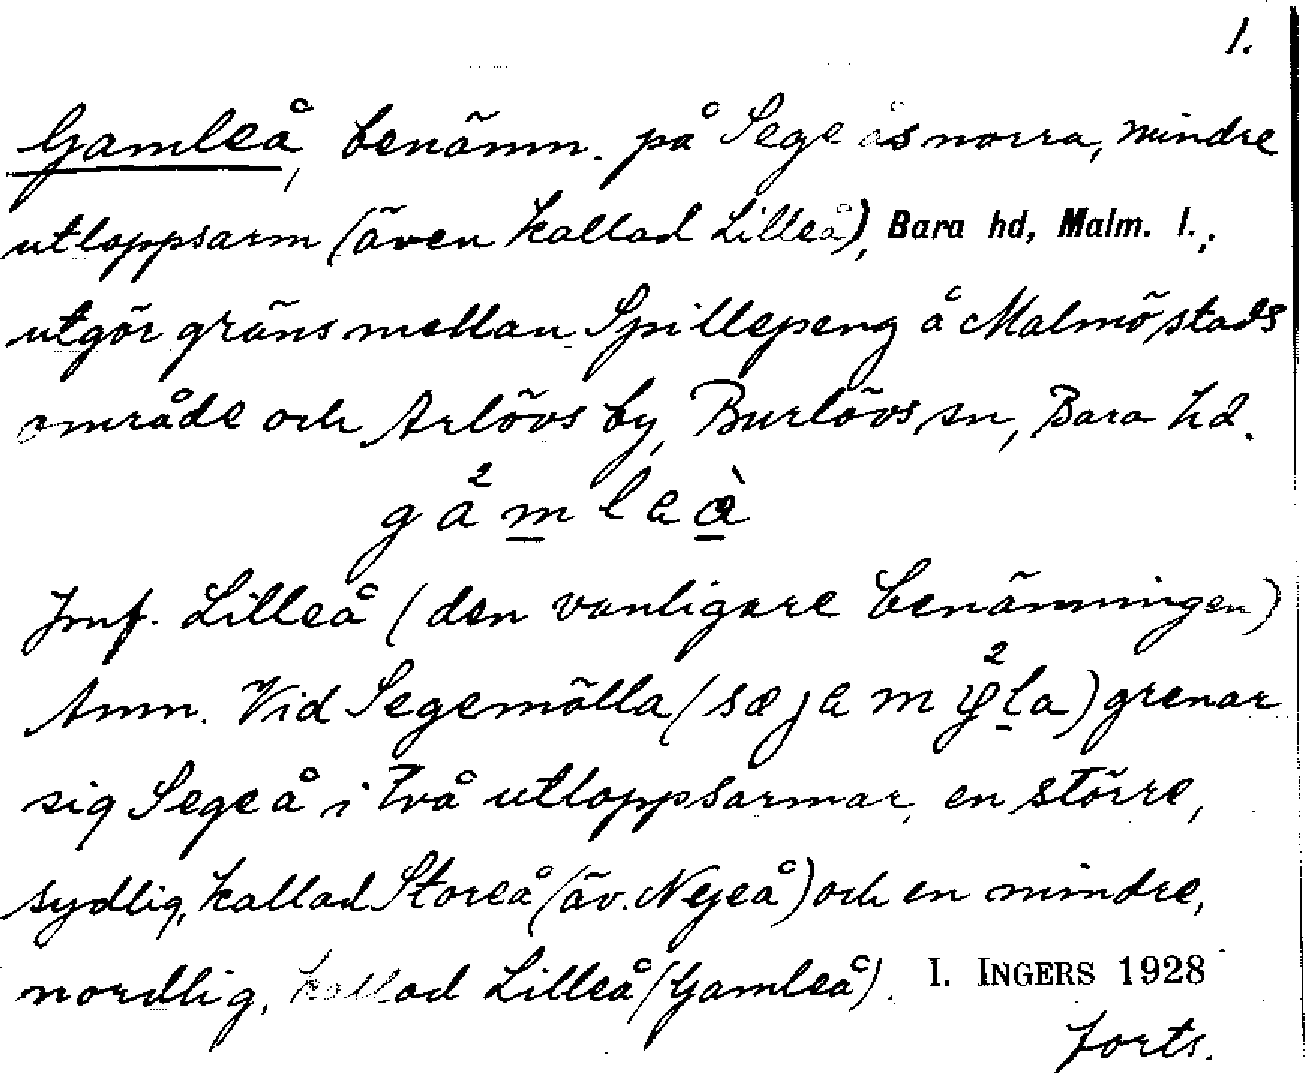 1.
Gamleå, benämn. på Sege ås norra, mindre
utloppsarm (även kallad Lilleå), Bara hd, Malm. l.,
utgör gräns mellan Spillepeng å Malmö stads
område och Arlövs by, Burlövs sn, Bara hd.
Jmf. Lilleå (den vanligare benämningen)
Anm. Vid Segemölla ( ) grenar
sig Segeå i två utloppsarmar, en större,
sydlig, kallad Storeå (äv. Nyeå) och en mindre,
nordlig, kallad Lilleå (Gamleå). I. INGERS 1928
forts.